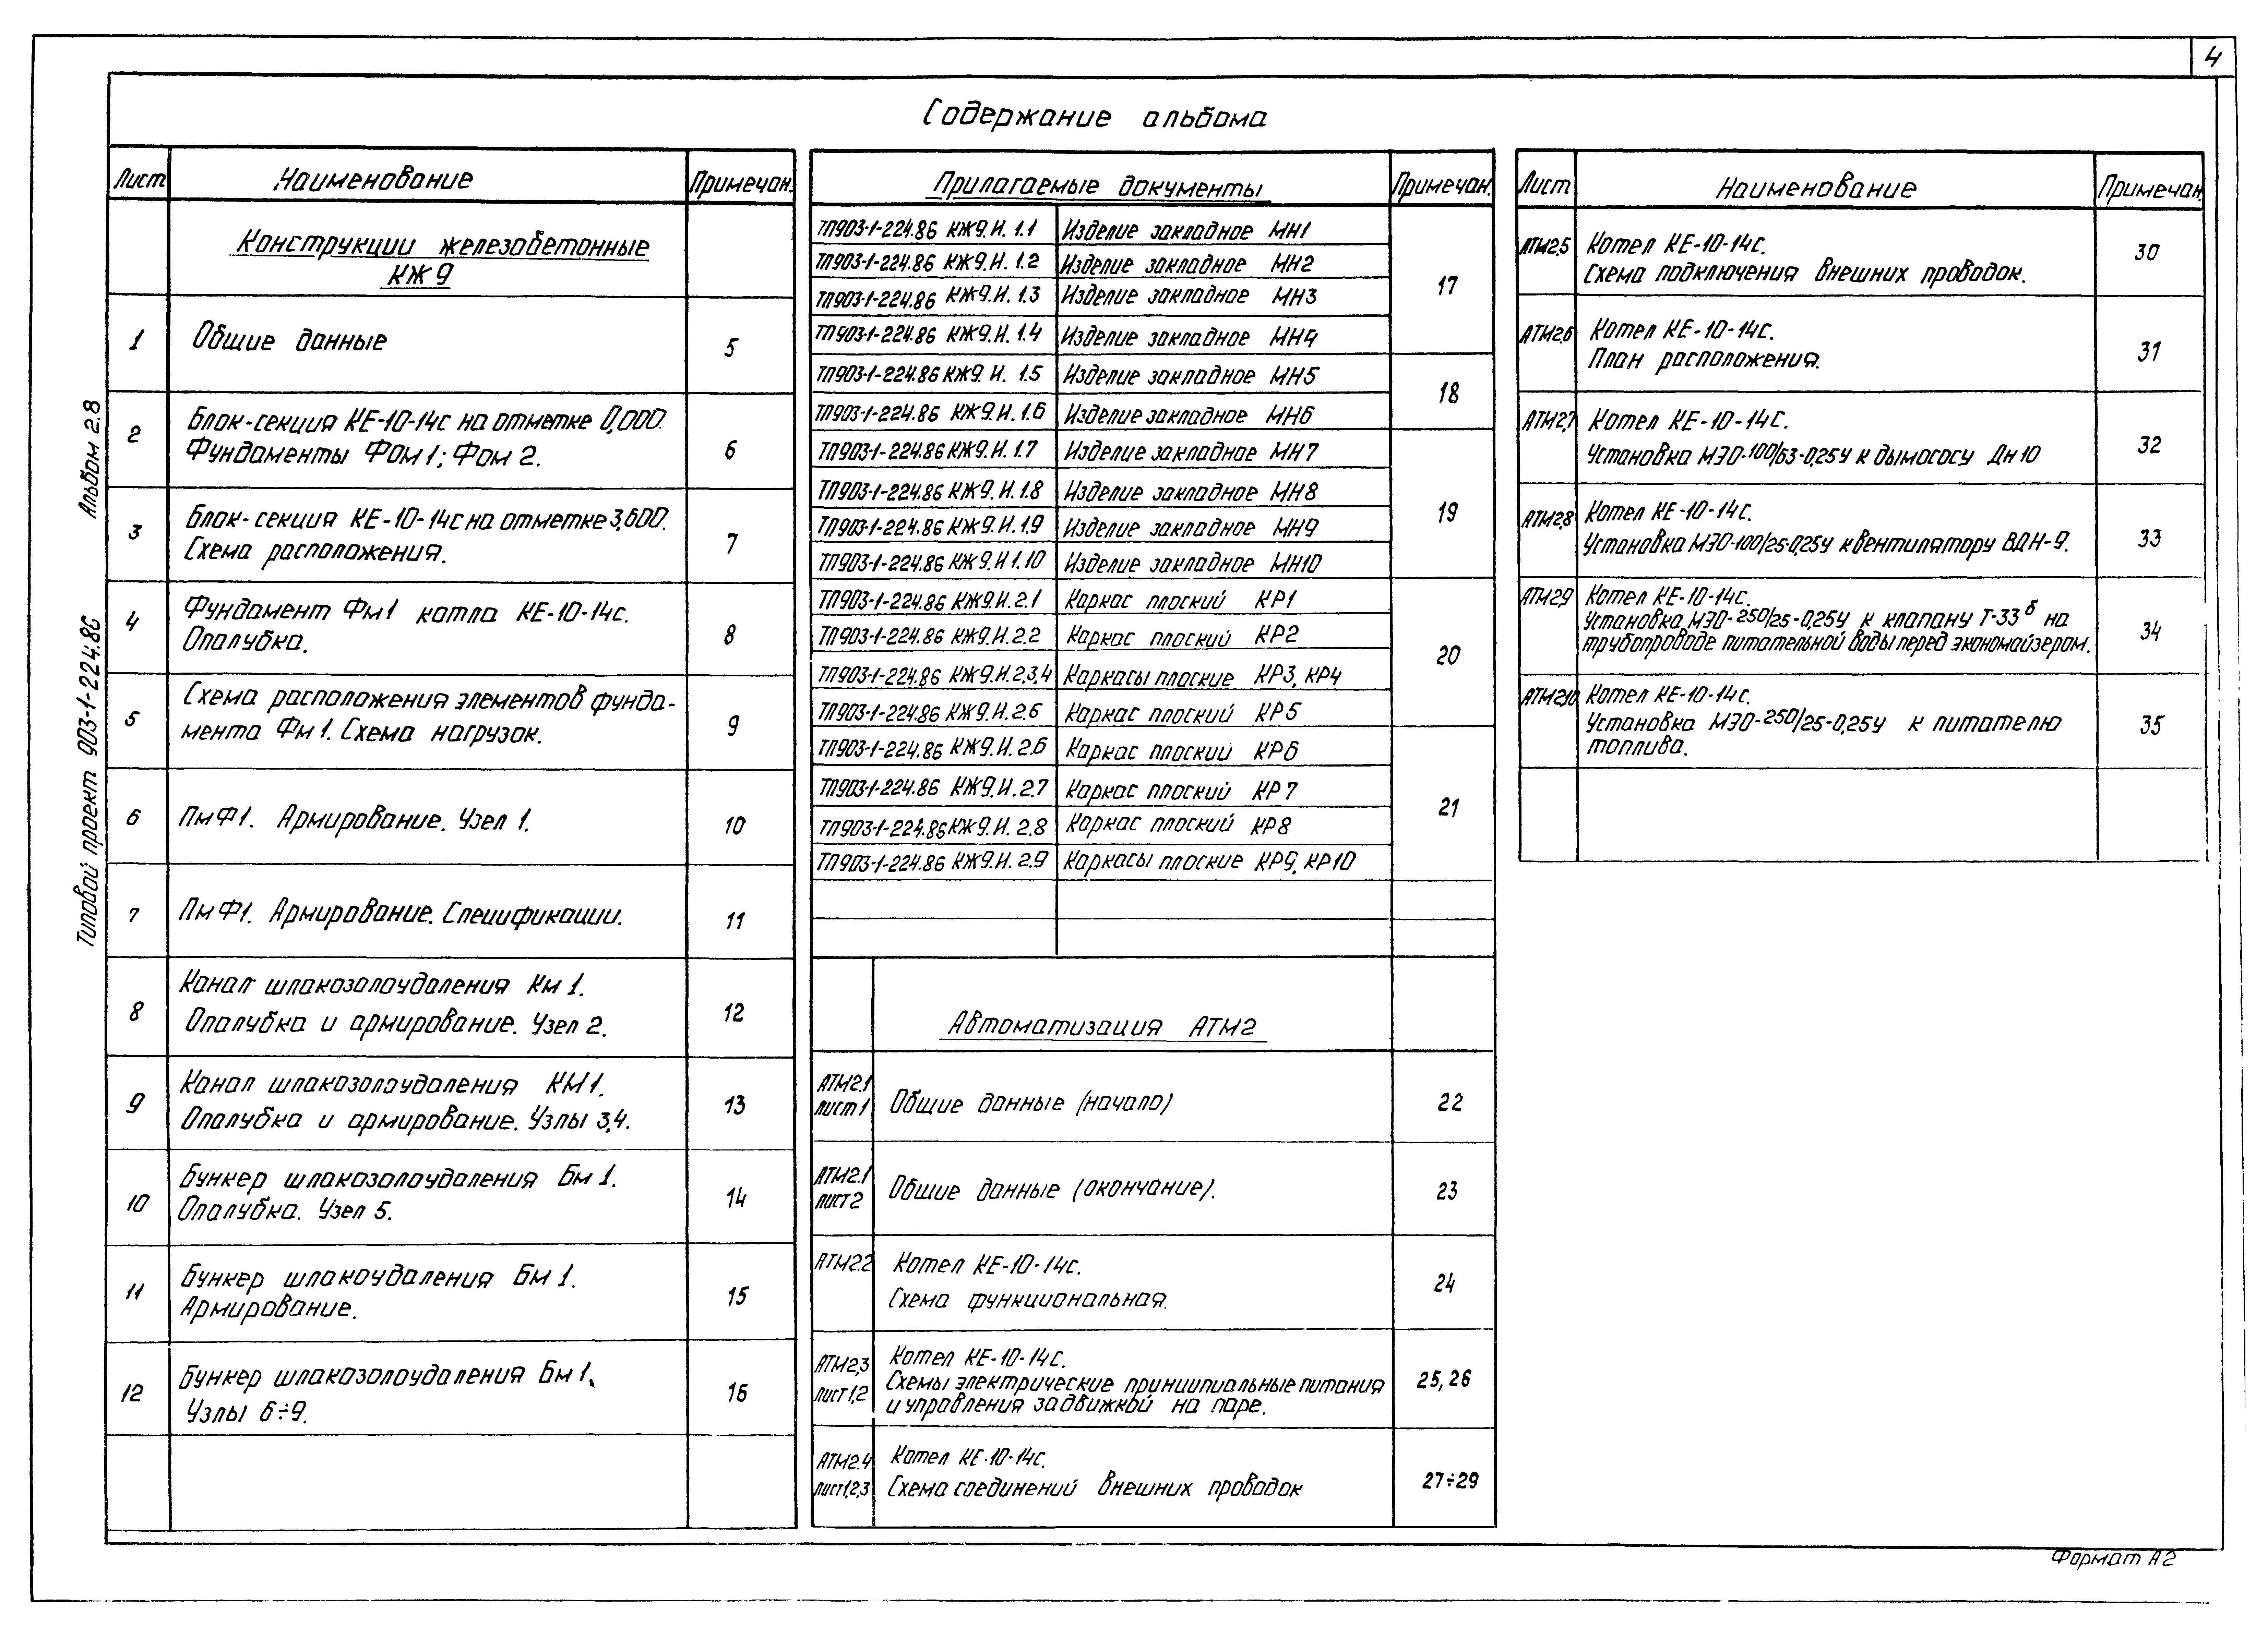 4
Содержание альбома
Альбом 2.8
Типовой проект 903-1-224.86
Лист Наименование Примечан.
Конструкции железобетонные
КЖ9
1 Общие данные 5
2 Блок-секция КЕ-10-14с на отметке 0,000. 6
Фундаменты ФОм1; Фом 2.
3 Блок-секция КЕ-10-14с на отметке 3,600. 7
Схема расположения.
4 Фундамент Фм1 котла КЕ-10-14с. 8
Опалубка.
5 Схема расположения элементов фунда- 9
мента Фм1. Схема нагрузок.
6 ПмФ1. Армирование. Узел 1. 10
7 ПмФ1. Армирование. Спецификации. 11
8 Канал шлакозолоудаления Км 1. 12
Опалубка и армирование. Узел 2.
9 Канал шлакозолоудаления КМ1. 13
Опалубка и армирование. Узлы 3,4.
10 Бункер шлакозолоудаления Бм 1. 14
Опалубка. Узел 5.
11 Бункер шлакоудаления Бм 1. 15
Армирование.
12 Бункер шлакозолоудаления Бм 1. 16
Узлы 6÷9.
Прилагаемые документы Примечан.
ТП903-1-224.86 КЖ9.И. 1.1 Изделие закладное МН1
ТП903-1-224.86 КЖ9.И. 1.2 Изделие закладное МН2
ТП903-1-224.86 КЖ9.И. 1.3 Изделие закладное МН3 17
ТП903-1-224.86 КЖ9.И. 1.4 Изделие закладное МН4
ТП903-1-224.86 КЖ9.И. 1.5 Изделие закладное МН5 18
ТП903-1-224.86 КЖ9.И. 1.6 Изделие закладное МН6
ТП903-1-224.86 КЖ9.И. 1.7 Изделие закладное МН7
ТП903-1-224.86 КЖ9.И. 1.8 Изделие закладное МН8
ТП903-1-224.86 КЖ9.И. 1.9 Изделие закладное МН9 19
ТП903-1-224.86 КЖ9.И 1.10 Изделие закладное МН10
ТП903-1-224.86 КЖ9.И. 2.1 Каркас плоский КР1
ТП903-1-224.86 КЖ9.И. 2.2 Каркас плоский КР2
ТП903-1-224.86 КЖ9.И. 2.3,4 Каркасы плоские КР3, КР4 20
ТП903-1-224.86 КЖ9.И. 2.6 Каркас плоский КР5
ТП903-1-224.86 КЖ9.И. 2.6 Каркас плоский КР6
ТП903-1-224.86 КЖ9.И. 2.7 Каркас плоский КР7
ТП903-1-224.86 КЖ9.И. 2.8 Каркас плоский КР8 21
ТП903-1-224.86 КЖ9.И. 2.9 Каркасы плоские КР9, КР10
Автоматизация АТМ2
АТМ2.1 лист 1 Общие данные (начало) 22
АТМ2.1 лист 2 Общие данные (окончание). 23
АТМ2.2 Котел КЕ-10-14с. 24
Схема функциональная.
АТМ2,3 Котел КЕ-10-14с. 25, 26
лист 1,2 Схемы электрические принципиальные питания
и управления задвижкой на паре.
АТМ2.4 Котел КЕ-10-14с. 27÷29
лист 1,2,3 Схема соединений внешних проводок
Лист Наименование Примечан.
АТМ2,5 Котел КЕ-10-14с. 30
Схема подключения внешних проводок.
АТМ2.6 Котел КЕ-10-14с. 31
План расположения.
АТМ2,7 Котел КЕ-10-14с. 32
Установка МЭО-100/63-0,25У к дымососу Дн 10
АТМ2,8 Котел КЕ-10-14с. 33
Установка МЭО-100/25-0,25У к вентилятору ВДН-9.
АТМ2,9 Котел КЕ-10-14с. 34
Установка МЭО-250/25-0,25У к клапану Т-33б на
трубопроводе питательной воды перед экономайзером.
АТМ2,10 Котел КЕ-10-14с. 35
Установка МЭО-250/25-0,25У к питателю
топлива.
Формат А2